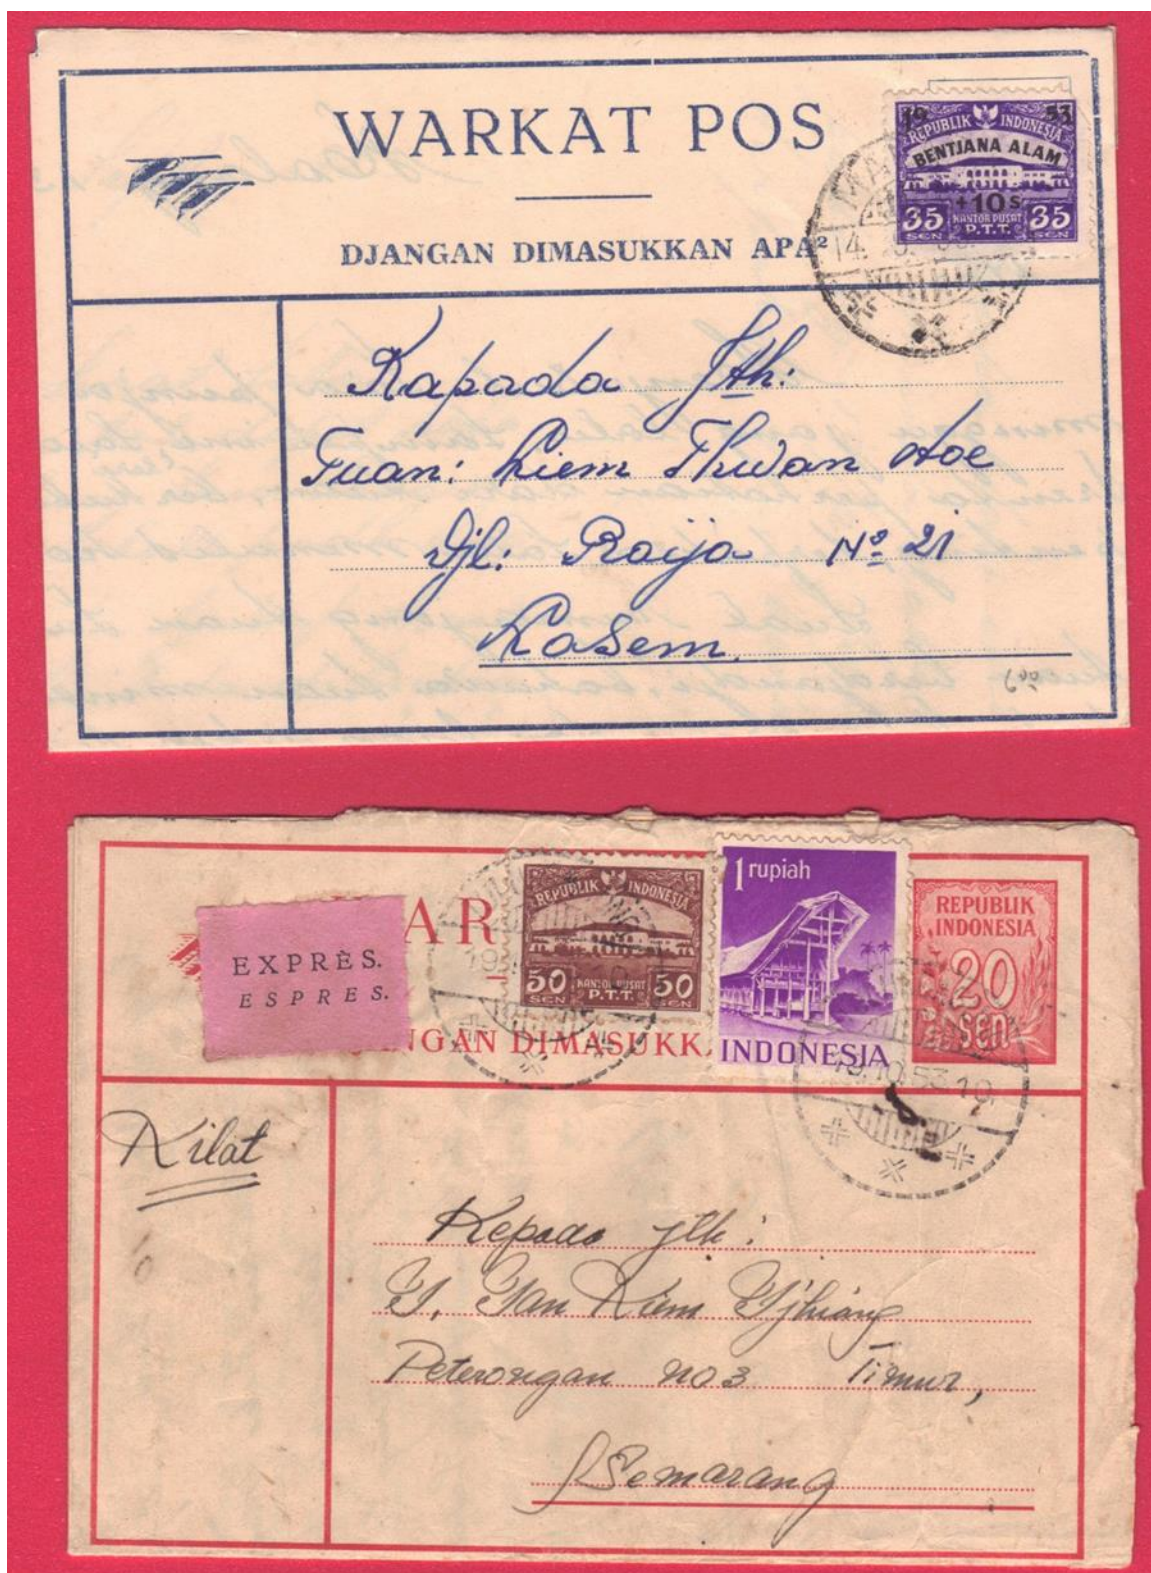 WARKAT POS
DJANGAN DIMASUKKAN APA²
19 53
REPUBLIK INDONESIA
BENTJANA ALAM
+10 s
35 KANTOR PUSAT 35
SEN P.T.T. SEN
14.
Kapada Jth:
Tuan: Liem Thwan Hoe
Djl: Raija No 21
Lasem.
AR
EXPRÈS.
ESPRES.
REPUBLIK INDONESIA
50 KANTOR PUSAT 50
SEN P.T.T. SEN
1 rupiah
INDONESIA
REPUBLIK
INDONESIA
20
SEN
NGAN DIMASUKK
19.10.53.19
Kilat
Kepada jth:
T. Tan Kiem Tjhiang
Peterongan no 3 Timur,
Semarang